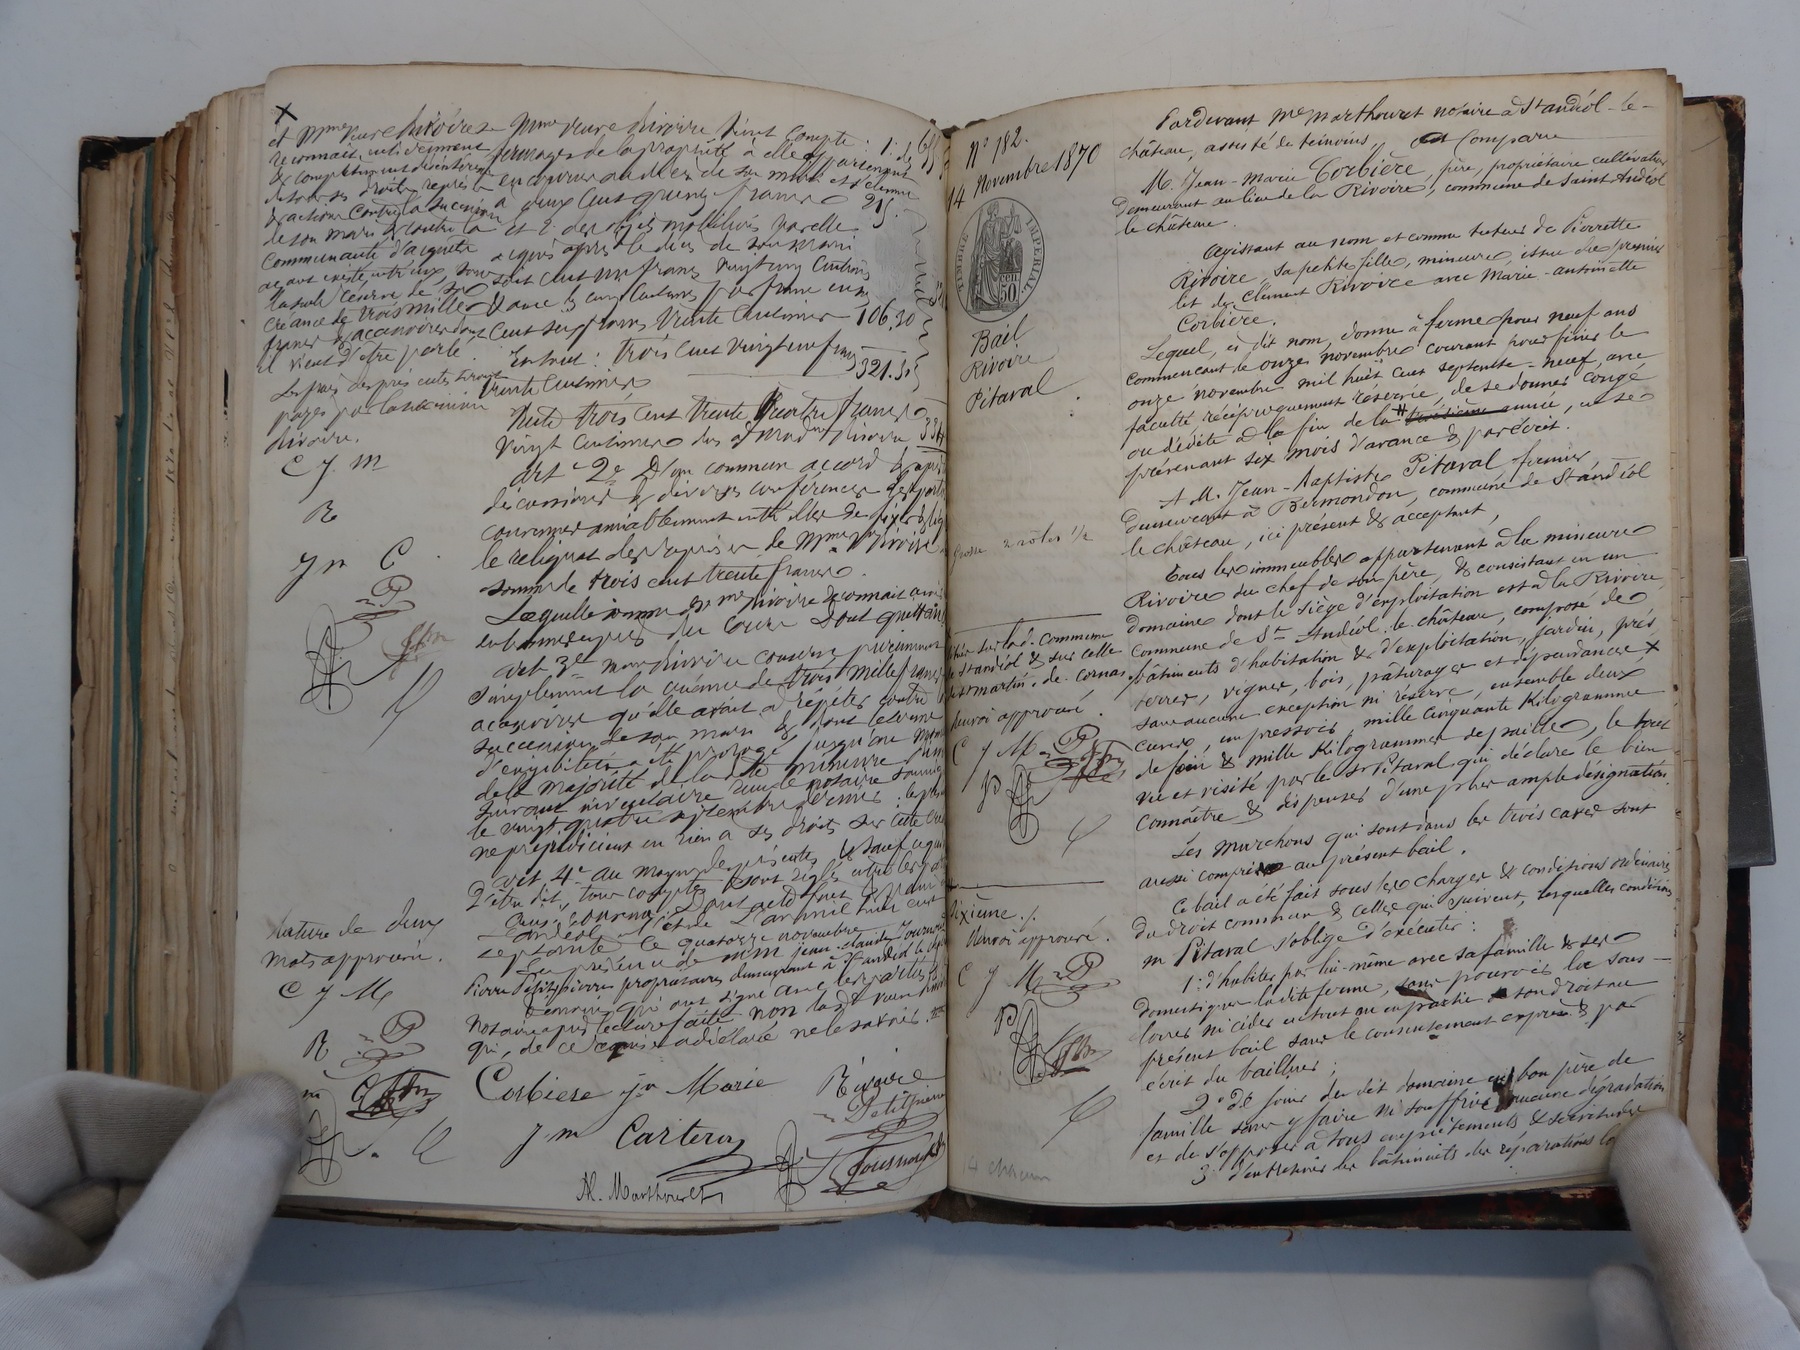 X
et Mme veuve Rivoire
reconnait, entièrement
& complètement désintéressée
de tous ses droits, reprises
& actions contre la succession
de son mari & contre la
communauté d'acquets
ayant existé entre eux, sous
la seule réserve de sa
créance de trois mille
francs & accessoires dont
il vient d'être parlé.
Les frais des présentes seront
payés par la succession
Rivoire.
C J M
R
J m C
Mme veuve Rivoire tient compte : 1° des
fermages de la propriété à elle appartenant
en cours au décès de son mari et s'élevant
à deux cent quinze francs 215.
et 2° des objets mobiliers par elle
acquis après le décès de son mari
soit cent un francs vingt cinq centimes
& avec les cinq centimes par franc en sus
cent six francs trente centimes 106.30
En tout : trois cent vingt un francs
trente centimes 321.30
Reste trois cent trente quatre francs
vingt centimes dus à Madme Rivoire 334
Art. 2e D'un commun accord & après
discussions & diverses conférences les parties
conviennent amiablement entre elles de fixer
le reliquat des reprises de Mme Rivoire
somme de trois cent trente francs.
Laquelle somme Mme Rivoire reconnait avoir
Art 3e Mme Rivoire conserve purement
& simplement la créance de trois mille francs
accessoires qu'elle avait à répéter contre la
succession de son mari & dont le terme
d'exigibilité a été prorogé jusqu'au
de la majorité de la dite mineure
suivant inventaire reçu le notaire soussigné
le vingt quatre septembre dernier
ne préjudicient en rien à ses droits sur cette
Art 4e Au moyen des présentes & sauf ce qui
vient d'être dit, tous comptes sont réglés entre les parties
Dont acte fait & passé
L'an mil huit cent
septante le quatorze novembre
En présence de MM Jean-Claude Journoud
Pierre Petitpierre propriétaires demeurant à St Andéol le château
témoins qui ont signé avec les parties
notaire après lecture faite non la dite veuve Rivoire
qui, de ce requise a déclaré ne le savoir.
Rature de deux
mots approuvée.
C J M
R
Corbiere jn Marie
Rivoire
Petitpierre
J m Carteron
Journoud
Al. Marthouret
N° 182.
14 Novembre 1870
TIMBRE IMPERIAL
50 CEN
Bail
Rivoire
Pitaval
Pardevant Me Marthouret notaire à St Andéol-le-
château, assisté de témoins, a comparu
M. Jean-Marie Corbière, père, propriétaire cultivateur
demeurant au lieu de la Rivoire, commune de Saint Andéol
le château.
Agissant au nom et comme tuteur de Pierrette
Rivoire, sa petite fille, mineure, issue du premier
lit de Clément Rivoire avec Marie-Antoinette
Corbière.
Lequel, ès dit nom, donne à ferme pour neuf ans
commencant le onze novembre courant pour finir le
onze novembre mil huit cent septante-neuf, avec
faculté, réciproquement réservée, de se donner congé
ou dédite à la fin de la # troisième année, en se
prévenant six mois d'avance & par écrit.
A M. Jean-Baptiste Pitaval, fermier,
demeurant à Bermondon, commune de St Andéol
le château, ici présent & acceptant,
Tous les immeubles appartenant à la mineure
Rivoire du chef de son père, & consistant en un
domaine dont le siège d'exploitation est à la Rivoire,
commune de St Andéol-le-château, composé de
bâtiments d'habitation & d'exploitation, jardin, prés,
terres, vignes, bois, pâturages et dépendances X
sans aucune exception ni réserve, ensemble deux
cuves, un pressoir, mille cinquante kilogrammes
de foin & mille kilogrammes de paille, le tout
vu et visité par le sr Pitaval qui déclare le bien
connaître & dispenser d'une plus ample désignation.
Les marchons qui sont dans les trois caves sont
aussi compris au présent bail.
Ce bail a été fait sous les charges & conditions ordinaires
du droit commun & celles qui suivent, lesquelles conditions
m Pitaval s'oblige d'exécuter :
1° d'habiter par lui-même avec sa famille & ses
domestiques ladite ferme, sans pouvoir la sous-
louer ni céder en tout ou en partie son droit au
présent bail sans le consentement exprès & par
écrit du bailleur ;
2° de jouir du dit domaine en bon père de
famille sans y faire ni souffrir aucune dégradation
et de s'opposer à tous empiètements & servitudes
3° d'entretenir les bâtiments des réparations
Grosse 2 roles 1/2
situés sur lad. commune
de St Andéol & sur celle
de St Martin-de-Cornas
Renvoi approuvé.
C J M
sixième ./.
Renvoi approuvé.
C J M